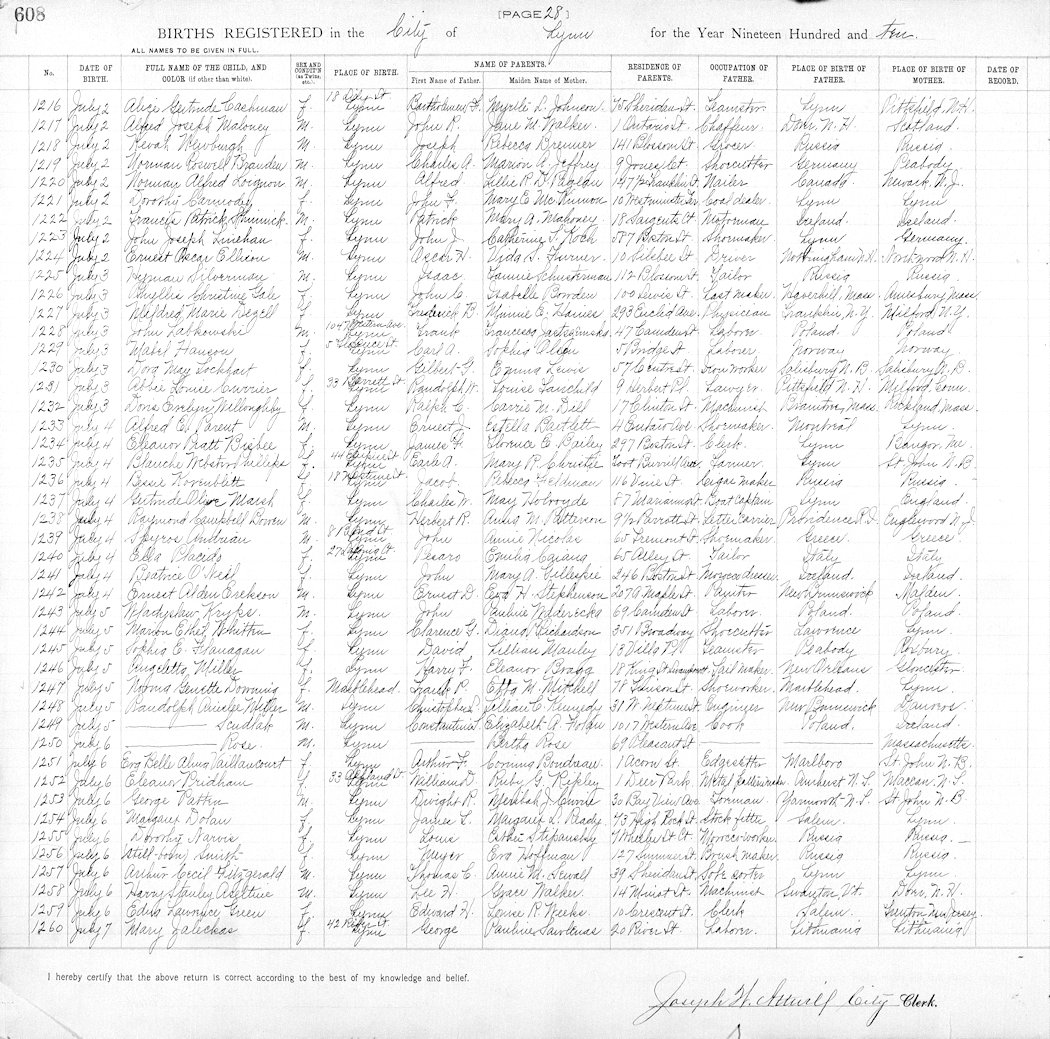 608
[PAGE 28]
BIRTHS REGISTERED in the City of Lynn for the Year Nineteen Hundred and ten.
ALL NAMES TO BE GIVEN IN FULL.
No. DATE OF BIRTH. FULL NAME OF THE CHILD, AND COLOR (if other than white). SEX AND CONDIT'N (as Twins, etc.) PLACE OF BIRTH. NAME OF PARENTS. First Name of Father. Maiden Name of Mother. RESIDENCE OF PARENTS. OCCUPATION OF FATHER. PLACE OF BIRTH OF FATHER. PLACE OF BIRTH OF MOTHER. DATE OF RECORD.
1216 July 2 Alice Gertrude Cashman F. Lynn Bartholomew F. Myrtle L. Johnson 75 Sheridan St. Teamster Lynn Pittsfield, N.H.
1217 July 2 Alfred Joseph Maloney M. Lynn John R. Jane M. Walker 1 Ontario St. Chaffeur Dover, N.H. Scotland
1218 July 2 Newburgh M. Lynn Joseph Rebecca Brenner 141 Blossom St. Grocer Russia Russia
1219 July 2 Norman Roswell Branden M. Lynn Charles A. Marion A. Jeffrey 9 Ct. Shoecutter Germany Peabody
1220 July 2 Norman Alfred Loignon M. Lynn Alfred Lillie R. 147½ Franklin St. Nailer Canada Newark, N.J.
1221 July 2 Dorothy Carmody F. Lynn John F. Mary E. McKinnon 10 Westminster Ter. Coal dealer Lynn Lynn
1222 July 2 Francis Patrick M. Lynn Patrick Mary A. Mahoney 18 Sargents Ct. Motorman Ireland Ireland
1223 July 2 John Joseph Linehan F. Lynn John J. Catherine T. Koch 587 Boston St. Shoemaker Lynn Germany
1224 July 2 Ernest Oscar Ellison M. Lynn Oscar H. Vida B. Furner 10 Silsbee St. Driver Nottingham N.H. Northwood N.H.
1225 July 3 Hyman Silverman M. Lynn Isaac Fannie Schusterman 112 Blossom St. Tailor Russia Russia
1226 July 3 Phyllis Christine Gale F. Lynn John C. Isabelle Bowden 100 Lewis St. Last maker Haverhill, Mass. Amesbury Mass
1227 July 3 Mildred Marie Zegell F. Lynn Frederick B. Minnie C. Haines 293 Euclid Ave. Physician Franklin, N.Y. Milford N.Y.
1228 July 3 John Labkowski M. 1047 Western Ave. Lynn Frank Francisca 47 Camden St. Laborer Poland Poland
1229 July 3 Mabel Hanson F. Lynn Carl A. Sophia Olsen 5 Bridge St. Laborer Norway Norway
1230 July 3 Dora May Lockhart F. Lynn Gilbert G. Emma Lewis 57 Centre St. Iron worker Salisbury N.B. Salisbury N.B.
1231 July 3 Abbie Louise Currier F. 33 Barrett St. Lynn Randolph W. Louise Fairchild 9 Herbert Pl. Lawyer Pittsfield N.H. Milford Conn.
1232 July 3 Doris Evelyn Willoughby F. Lynn Ralph C. Carrie M. Dill 17 Clinton St. Machinist Braintree, Mass. Rockland, Mass.
1233 July 4 Alfred E. Parent M. Lynn Ernest J. Estella Bartlett 4 Ontario Ave Shoemaker Montreal Lynn
1234 July 4 Eleanor Pratt Bisbee F. Lynn James H. Florence E. Bailey 297 Boston St. Clerk Lynn Bangor, Me.
1235 July 4 Blanche Webster Phillips F. Lynn Earle A. Mary R. Christie Foot Burrill Ave Farmer Lynn St. John N.B.
1236 July 4 Bessie Rosenblett F. Lynn Jacob Rebecca Feldman 116 Vine St. Cigar maker Russia Russia
1237 July 4 Gertrude Olive Marsh F. Lynn Charles W. May Holroyde 87 Marianna St. Boat Captain Lynn England
1238 July 4 Raymond Campbell Bowen M. Lynn Herbert R. Anna M. Patterson 9½ Parrott St. Letter Carrier Providence R.I. Englewood N.J.
1239 July 4 Spyros Andrian M. Lynn John Annie Nicolas 65 Tremont St. Shoemaker Greece Greece
1240 July 4 Ella Placido F. Lynn Pesaro Emilia 65 Alley St. Tailor Italy Italy
1241 July 4 Beatrice O'Neil F. Lynn John Mary A. Gillespie 246 Boston St. Morocco dresser Ireland Ireland
1242 July 4 Ernest Alden Erickson M. Lynn Ernest D. Eva H. Stephenson 207 A Maple St. Painter New Brunswick Malden
1243 July 5 Wladyslaw M. Lynn John Pauline 69 Camden St. Laborer Poland Poland
1244 July 5 Marion Ethel Whitten F. Lynn Clarence G. Diana Richardson 351 Broadway Shoecutter Lawrence Lynn
1245 July 5 Sophia E. Flanagan F. Lynn David Lillian Manley 13 Mills Pl. Teamster Peabody Roxbury
1246 July 5 Angeletta Miller F. Lynn Harry F. Eleanor Bragg 18 King St. Sail maker New Orleans Gloucester
1247 July 5 Norma Genette Downing F. Marblehead Frank P. Etta M. Mitchell 78 Linson St. Shoeworker Marblehead. Lynn
1248 July 5 Randolph Ainslee Withee M. Lynn Christopher L. Lillian C. Kennedy 31 W. Neptune St. Engineer New Brunswick Danvers
1249 July 5 —— Scudlak M. Lynn Constantine Elizabeth A. Holden 1017 Western Ave Cook Poland Ireland
1250 July 6 —— Rose. M. Lynn —— Bertha Rose 69 Pleasant St —— —— Massachusetts
1251 July 6 Eva Belle Alma Vaillancourt F. Lynn Arthur F. Corinne Boudreau 1 Acorn St. Edgesetter Marlboro St. John N.B.
1252 July 6 Eleanor Pridham F. 33 Ashland St. Lynn William D. Ruby G. Ripley 1 Deer Park. Metal Amherst N.S. Maccan, N.S.
1253 July 6 George Patten M. Lynn Dwight R. Mehitable J. Currie 30 Bay View Ave Foreman Yarmouth N.S. St. John N.B
1254 July 6 Margaret Dolan F. Lynn James L. Margaret L. Ready 73 High Rock St. Stock fitter Salem Lynn
1255 July 6 Dorothy Narvis F. Lynn Louis Esther Stepansky 7 Wheeler St. Ct. Moroccoworker Russia Russia
1256 July 6 Still-born F. Lynn Meyer Eva Hoffman 127 Summer St. Brush maker Russia Russia
1257 July 6 Arthur Cecil Fitzgerald M. Lynn Thomas C. Annie M. Sewall 39 Sheridan St. Sole sorter Lynn Lynn
1258 July 6 Harry Stanley Aseltine M. Lynn Lee H. Grace Walker 14 Minot St. Machinist Swanton, Vt. Dover, N.H.
1259 July 6 Edna Lawrence Green F. Lynn Edward H. Louise R. Weeks 10 Crescent St. Clerk Salem Trenton New Jersey
1260 July 7 Mary Zaleckas F. 42 River St. Lynn George Pauline 20 River St. Laborer Lithuania Lithuania
I hereby certify that the above return is correct according to the best of my knowledge and belief.
Joseph W. Attwill City Clerk.